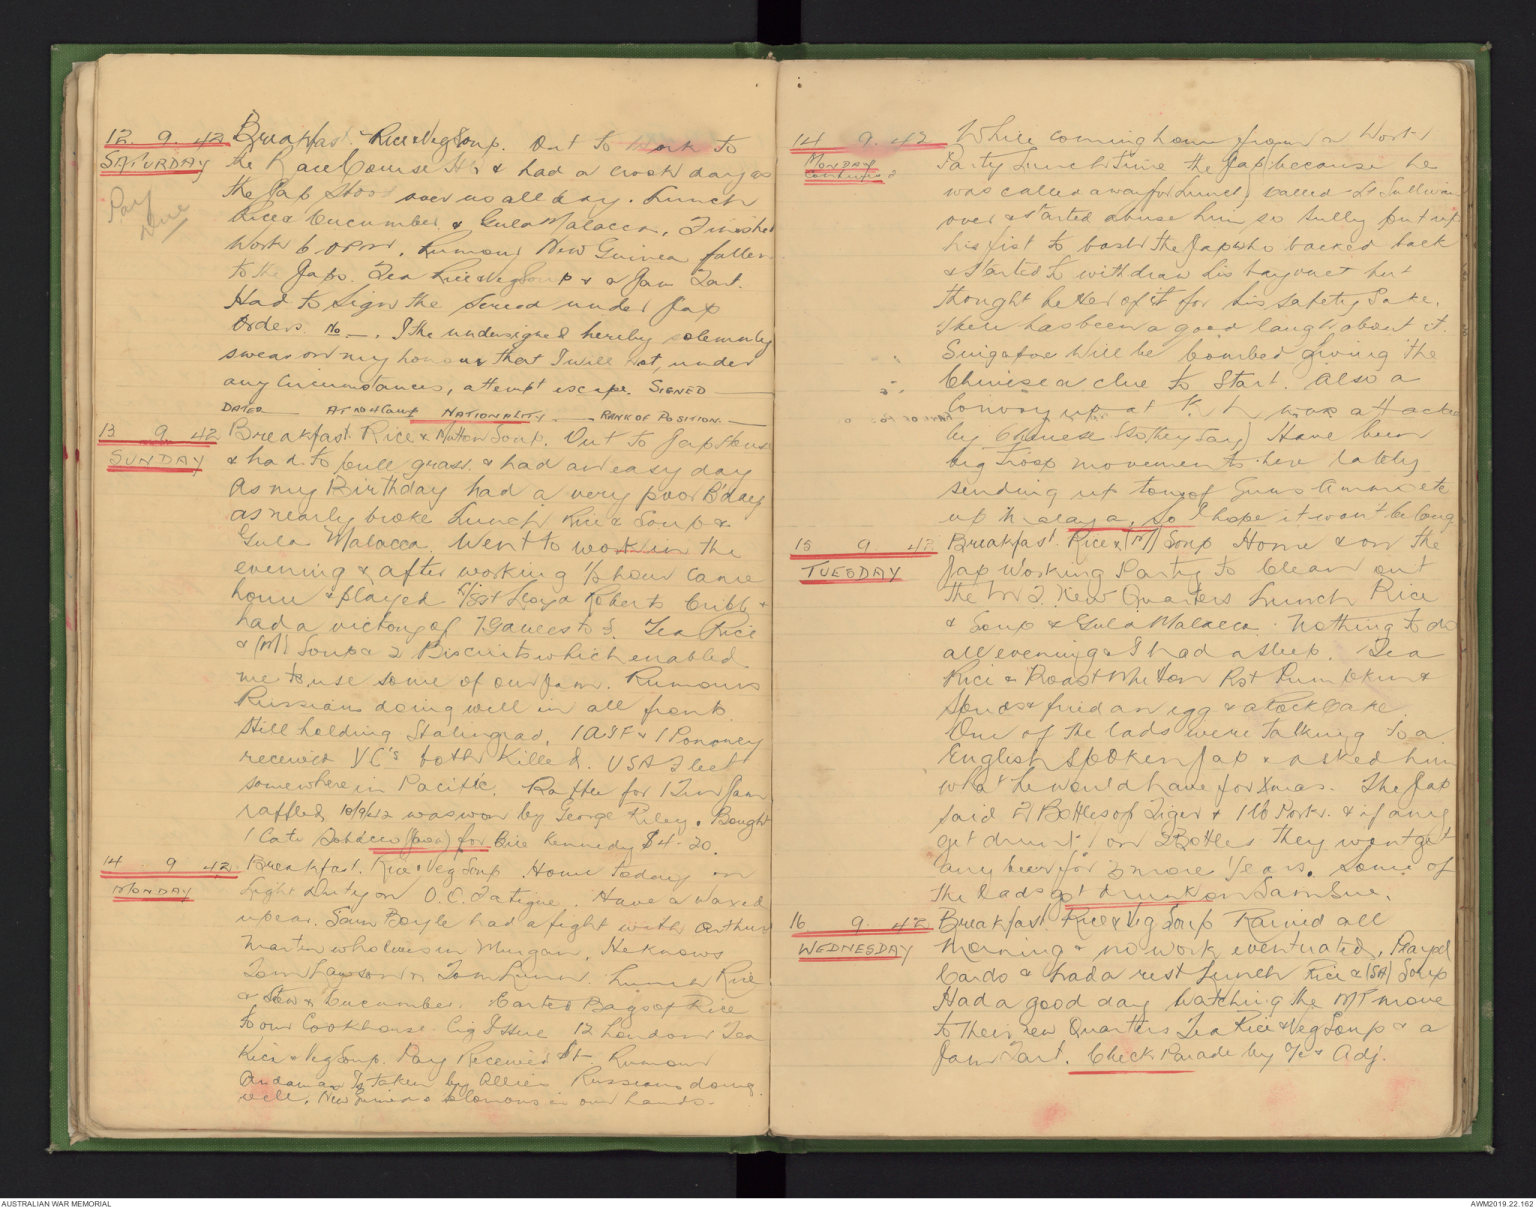 12. 9. 42 Breakfast Rice & Veg Soup. Out to work to
SATURDAY the Race Course & had a crook day as
Pay the Jap stood over us all day. Lunch
due Rice Cucumber & Gula Malacca. Finished
Work 6.0 PM. Rumour New Guinea fallen
to the Japs. Tea Rice & Veg Soup & a Jam Tart.
Had to sign the scread under Jap
Orders. No —. I the undersigned hereby solemnly
swear on my honour that I will not, under
any Circumstances, attempt escape. SIGNED
DATED AT NO 4 Camp NATIONALITY. RANK OF POSITION.
13 9. 42 Breakfast. Rice & Mutton Soup. Out to Jap House
SUNDAY & had to pull grass & had an easy day
As my Birthday had a very poor B'day
as nearly broke Lunch Rice & Soup &
Gula Malacca. Went to work in the
evening & after working ½ hour came
home & played S/Sgt Lloyd Roberts Cribb &
had a victory of 7 Games to 5. Tea Rice
& (M) Soup & 2 Biscuits which enabled
me to use some of our Jam. Rumours
Russians doing well in all fronts
Still holding Stalingrad. 1 AIF & 1
received VC's both killed. USA Fleet
somewhere in Pacific. Raffle for 1 Tin Jam
raffled 10/9/42 was won by George Riley. Bought
1 Cati Tobacco (Java) for Kennedy $4-20.
14 9 42. Breakfast. Rice & Veg Soup. Home Today on
MONDAY Light Duty on O.C. Fatigue. Have a waxed
up ear. Sam Boyle had a fight with Arthur
Martin who lives in Murgon. He knows
Tom Lawson & Tom Lunn. Lunch Rice
& Stew & Cucumber. Carted Bags of Rice
to our Cookhouse. Cig Issue 12 London Tea
Rice & Veg Soup. Pay Received Rumour
Andaman Is taken by Allies. Russians doing
well. New Guinea & Solomons in our hands.
14 9. 42 While coming home from a Work
MONDAY Party Lunch Time the Jap (because he
Continued was called away for Lunch) called Lt Sullivan
over & started abuse him, so Sully put up
his fist to bash the Jap who backed back
& started to withdraw his bayonet but
thought better of it for his safety sake.
There has been a good laugh about it.
Singapore will be bombed giving the
Chinese a clue to start. Also a
Convoy up at K. L was attacked
by Chinese (so they say) Have been
big Troop movements here lately
sending up tons of Guns Ammo etc
up Malaya, so I hope it wont be long
15 9 42 Breakfast. Rice & (M) Soup Home & on the
TUESDAY Jap Working Party to Clean out
the New Quarters Lunch Rice
& Soup & Gula Malacca. Nothing to do
all evening & I had a sleep. Tea
Rice & Roast Mutton Rst Pumpkin &
Spuds & fried an egg & a Rock Cake
One of the lads were talking to a
English Spoken Jap & asked him
what he would have for Xmas. The Jap
said 2 Bottles of Tiger & 1 lb Pork. & if any
get drunk on 2 Bottles they wont get
any beer for 3 more Years. Some of
the lads got drunk on Samsue.
16 9 42 Breakfast. Rice & Veg Soup Rained all
WEDNESDAY Morning & no work eventuated. Played
Cards & had a rest Lunch Rice & (SA) Soup
Had a good day watching the MT move
to their new Quarters Tea Rice & Veg Soup & a
Jam Tart. Check Parade by & Adj.
AUSTRALIAN WAR MEMORIAL
AWM2019.22.162